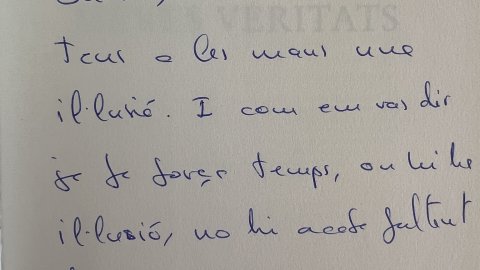 VERITATS
tens a les mans una
il·lusió. I com em vas dir
ja fa força temps, on hi ha
il·lusió, no hi acaba faltant